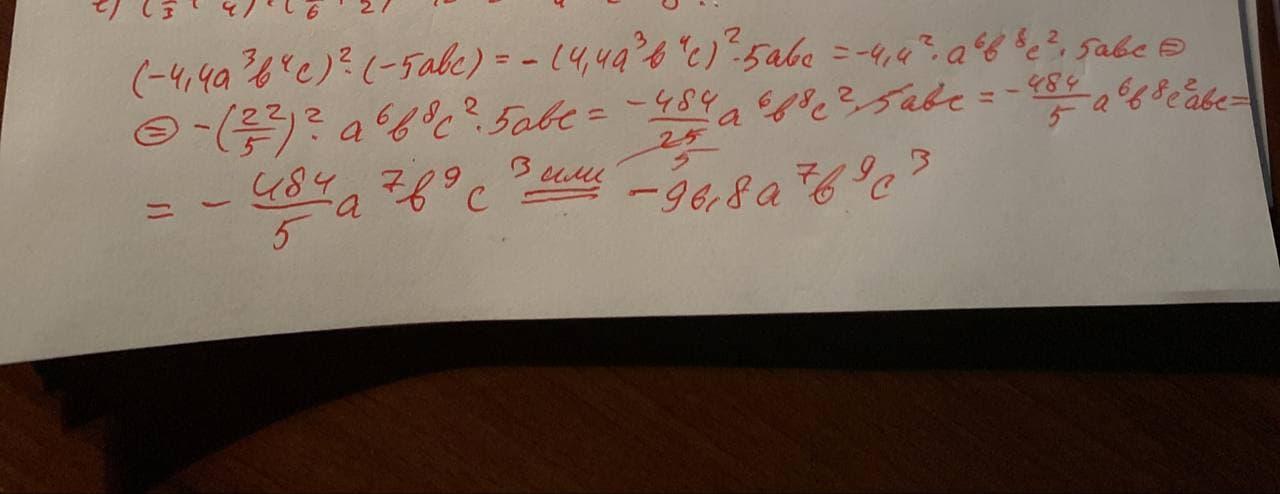 (-4,4a³b⁴c)²·(-5abc) = -(4,4a³b⁴c)²·5abc = -4,4²·a⁶b⁸c²·5abc ⊜
⊜ -(22/5)²·a⁶b⁸c²·5abc = -484/25 a⁶b⁸c²·5abc = -484/5 a⁶b⁸c²abc =
= -484/5 a⁷b⁹c³ или -96,8a⁷b⁹c³